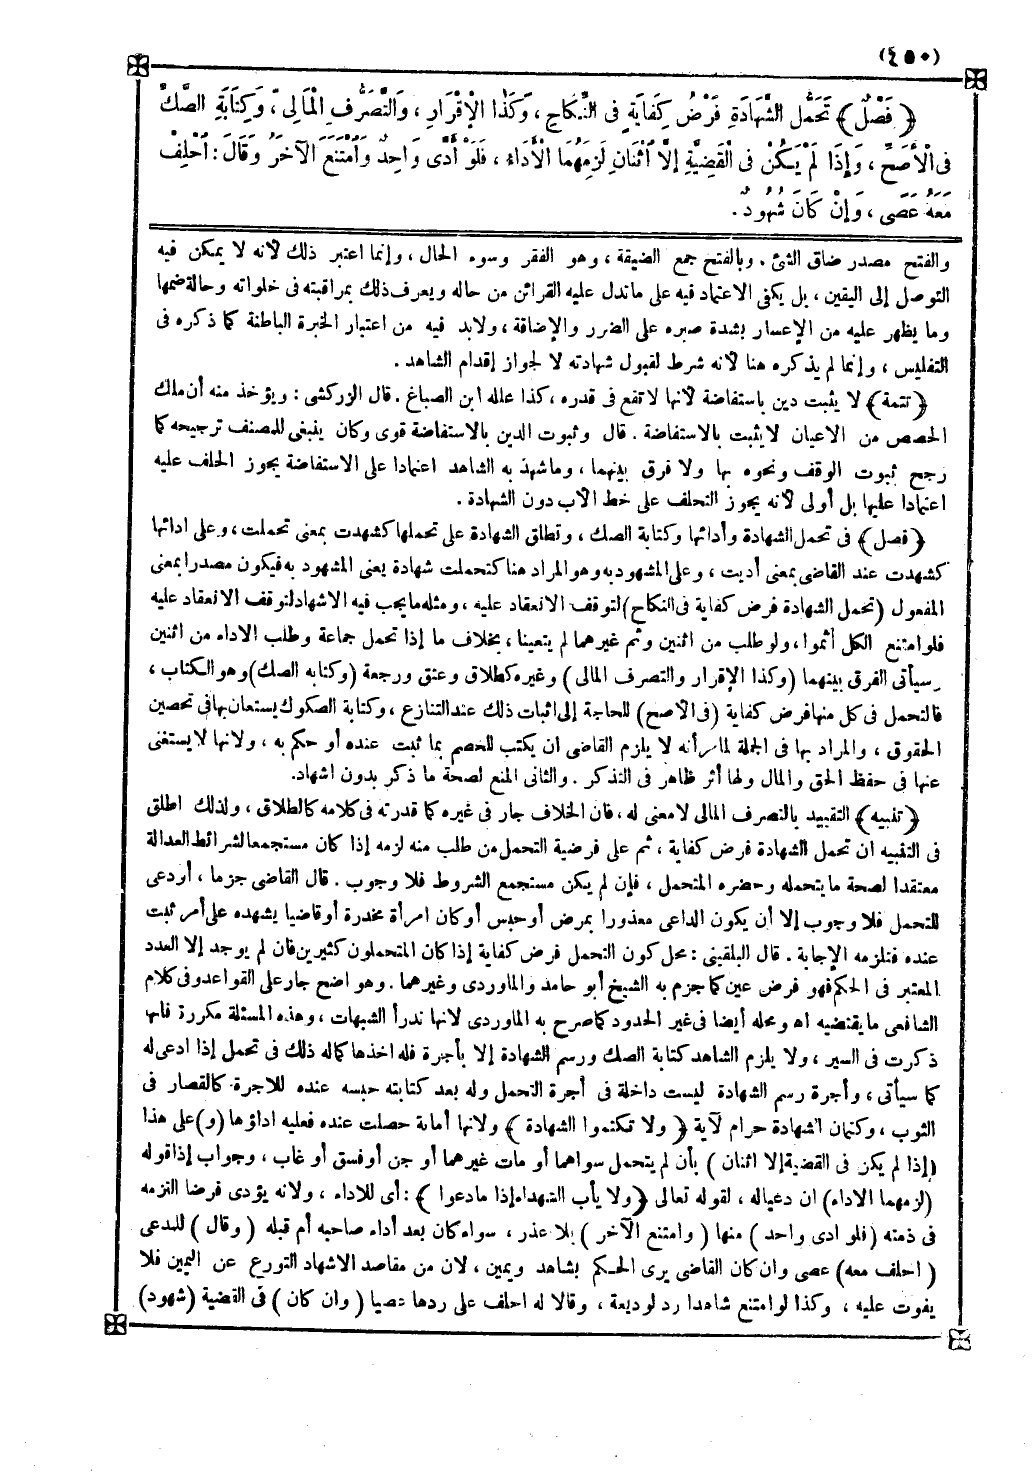 (٤٥٠)
﴿ فَصْلٌ ﴾ تَحَمُّلُ الشَّهَادَةِ فَرْضُ كِفَايَةٍ فِى النِّكَاحِ ، وَكَذَا الْإِقْرَارِ ، وَالتَّصَرُّفِ الْمَالِىِّ ، وَكِتَابَةِ الصَّكِّ
فِى الْأَصَحِّ ، وَإِذَا لَمْ يَكُنْ فِى الْقَضِيَّةِ إِلَّا اثْنَانِ لَزِمَهُمَا الْأَدَاءُ ، فَلَوْ أَدَّى وَاحِدٌ وَامْتَنَعَ الْآخَرُ وَقَالَ : احْلِفْ
مَعَهُ عَصَى ، وَإِنْ كَانَ شُهُودٌ .
والفتح مصدر ضاق الشئ . وبالفتح جمع الضيقة ، وهو الفقر وسوء الحال ، وإنما اعتبر ذلك لأنه لا يمكن فيه
التوصل إلى اليقين ، بل يكفى الاعتماد فيه على ماتدل عليه القرائن من حاله ويعرف ذلك بمراقبته فى خلواته وحالة ضمها
وما يظهر عليه من الإعسار بشدة صبره على الضرر والإضاقة ، ولابد فيه من اعتبار الخبرة الباطنة كما ذكره فى
التفليس ، وإنما لم يذكره هنا لأنه شرط لقبول شهادته لا لجواز إقدام الشاهد .
﴿ تتمة ﴾ لا يثبت دين باستفاضة لأنها لا تقع فى قدره ، كذا علله ابن الصباغ . قال الزركشى : ويؤخذ منه أن ملك
الحصص من الاعيان لا يثبت بالاستفاضة . قال وثبوت الدين بالاستفاضة قوى وكان ينبغى للمصنف ترجيحه كما
رجح ثبوت الوقف ونحوه بها ولا فرق بينهما ، وما شهد به الشاهد اعتمادا على الاستفاضة يجوز الحلف عليه
اعتمادا عليها بل أولى لأنه يجوز التحلف على خط الأب دون الشهادة .
﴿ فصل ﴾ فى تحمل الشهادة وأدائها وكتابة الصك ، وتطلق الشهادة على تحملها كشهدت بمعنى تحملت ، وعلى ادائها
كشهدت عند القاضى بمعنى أديت ، وعلى المشهود به وهو المراد هنا كتحملت شهادة يعنى المشهود به فيكون مصدرا بمعنى
المفعول (تحمل الشهادة فرض كفاية فى النكاح) لتوقف الانعقاد عليه ، ومثله ما يجب فيه الاشهاد لتوقف الانعقاد عليه
فلو امتنع الكل أثموا ، ولو طلب من اثنين وثم غيرهما لم يتعينا ، بخلاف ما إذا تحمل جماعة وطلب الاداء من اثنين
وسيأتى الفرق بينهما (وكذا الإقرار والتصرف المالى) وغيره كطلاق وعتق ورجعة (وكتابه الصك) وهو الكتاب ،
فالتحمل فى كل منها فرض كفاية (فى الأصح) للحاجة إلى اثبات ذلك عند التنازع ، وكتابة الصكوك يستعان بها فى تحصين
الحقوق ، والمراد بها فى الجملة لما مر أنه لا يلزم القاضى ان يكتب للخصم بما ثبت عنده أو حكم به ، ولانها لا يستغنى
عنها فى حفظ الحق والمال ولها أثر ظاهر فى التذكر . والثانى المنع لصحة ما ذكر بدون اشهاد.
﴿ تنبيه ﴾ التقييد بالتصرف المالى لا معنى له ، فان الخلاف جار فى غيره كما قدرته فى كلامه كالطلاق ، ولذلك اطلق
فى التنبيه ان تحمل الشهادة فرض كفاية ، ثم على فرضية التحمل من طلب منه لزمه إذا كان مستجمعا لشرائط العدالة
معتقدا لصحة ما يتحمله وحضره المتحمل ، فإن لم يكن مستجمع الشروط فلا وجوب . قال القاضى جزما ، أو دعى
للتحمل فلا وجوب إلا أن يكون الداعى معذورا بمرض أو حبس أو كان امرأة مخدرة أو قاضيا يشهده على أمر ثبت
عنده فتلزمه الإجابة . قال البلقينى : محل كون التحمل فرض كفاية إذا كان المتحملون كثيرين فان لم يوجد إلا العدد
المعتبر فى الحكم فهو فرض عين كما جزم به الشيخ أبو حامد والماوردى وغيرهما . وهو اضح جار على القواعد وفى كلام
الشافعى ما يقتضيه اه ومحله أيضا فى غير الحدود كما صرح به الماوردى لانها تدرأ الشبهات ، وهذه المسئلة مكررة فانها
ذكرت فى السير ، ولا يلزم الشاهد كتابة الصك ورسم الشهادة إلا بأجرة فله اخذها كما له ذلك فى تحمل إذا ادعى له
كما سيأتى ، وأجرة رسم الشهادة ليست داخلة فى أجرة التحمل وله بعد كتابته حبسه عنده للاجرة كالقصار فى
الثوب ، وكتمان الشهادة حرام لآية ﴿ ولا تكتموا الشهادة ﴾ ولانها أمانة حصلت عنده فعليه اداؤها (و) على هذا
(إذا لم يكن فى القضية إلا اثنان ) بأن لم يتحمل سواهما أو مات غيرهما أو جن أو فسق أو غاب ، وجواب إذا قوله
(لزمهما الاداء) ان دعيا له ، لقوله تعالى ﴿ ولا يأب الشهداء إذا مادعوا ﴾ : أى للاداء ، ولانه يؤدى فرضا التزمه
فى ذمته (فلو ادى واحد ) منها ( وامتنع الآخر ) بلا عذر ، سواء كان بعد أداء صاحبه أم قبله ( وقال ) للمدعى
( احلف معه) عصى وان كان القاضى يرى الحكم بشاهد ويمين ، لان من مقاصد الاشهاد التورع عن اليمين فلا
يفوت عليه ، وكذا لو امتنع شاهدا رد لوديعة ، وقالا له احلف على ردها عصيا ( وان كان ) فى القضية (شهود)